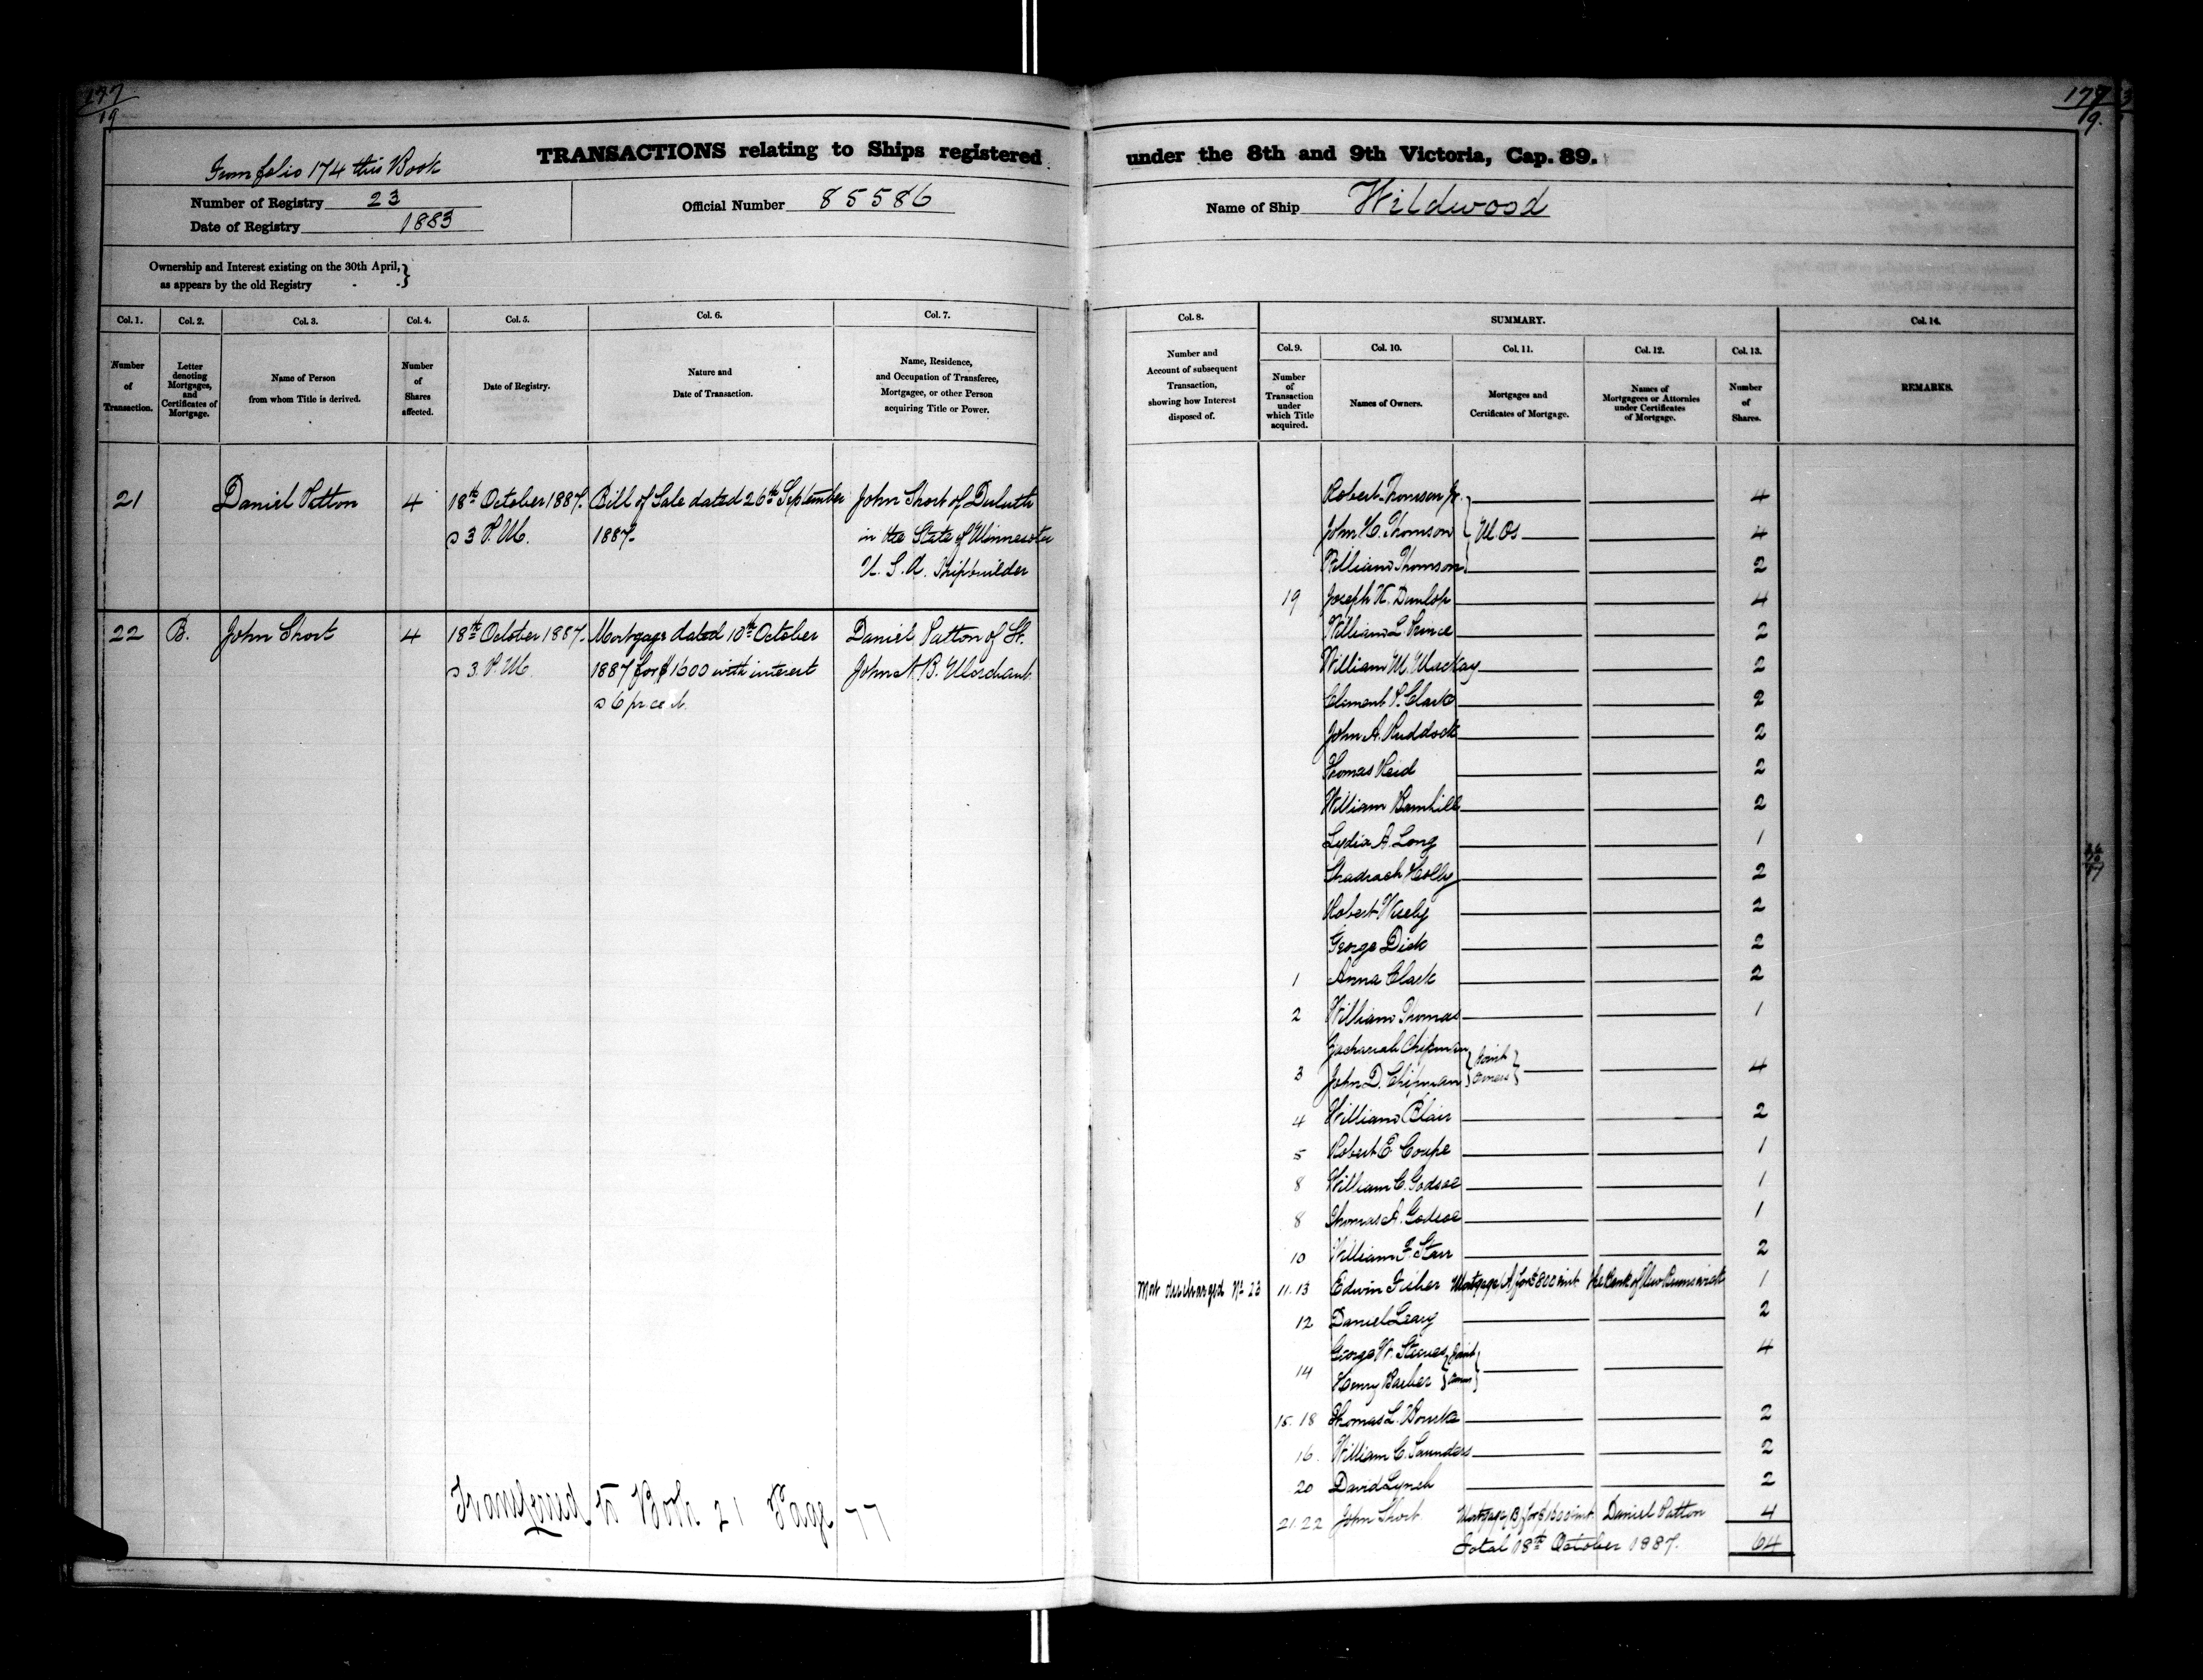 177
19
177
19.
From folio 174 this Book
TRANSACTIONS relating to Ships registered under the 8th and 9th Victoria, Cap. 89.
Number of Registry 23
Date of Registry 1883
Official Number 85586
Name of Ship Wildwood
Ownership and Interest existing on the 30th April, }
as appears by the old Registry - - }
Col. 1.
Number
of
Transaction.
Col. 2.
Letter
denoting
Mortgages,
and
Certificates of
Mortgage.
Col. 3.
Name of Person
from whom Title is derived.
Col. 4.
Number
of
Shares
affected.
Col. 5.
Date of Registry.
Col. 6.
Nature and
Date of Transaction.
Col. 7.
Name, Residence,
and Occupation of Transferee,
Mortgagee, or other Person
acquiring Title or Power.
Col. 8.
Number and
Account of subsequent
Transaction,
showing how Interest
disposed of.
SUMMARY.
Col. 9.
Number
of
Transaction
under
which Title
acquired.
Col. 10.
Names of Owners.
Col. 11.
Mortgages and
Certificates of Mortgage.
Col. 12.
Names of
Mortgagees or Attornies
under Certificates
of Mortgage.
Col. 13.
Number
of
Shares.
Col. 14.
REMARKS.
21 Daniel Patton 4 18th October 1887. Bill of Sale dated 26th September John Short of Duluth
3 P.M. 1887. in the State of Minnesota
U. S. A. Shipbuilder
22 B. John Short 4 18th October 1887. Mortgage dated 10th October Daniel Patton of St.
3 P.M. 1887 for $1600 with interest John N. B. Merchant
6 pr. cent.
Transferred to Book 21 Page 77
Robert Thomson Jr. 4
John H. Thomson } M.Os 4
William Thomson 2
19 Joseph W. Dunlop 4
William L. Prince 2
William M. Mackay 2
Clement P. Clarke 2
John A. Ruddock 2
Thomas Reid 2
William Barnhill 2
Lydia A. Long 1
Shadrach Holly 2
Robert Wisely 2
George Dick 2
1 Anna Clark 2
2 William Thomas 1
Zachariah Chipman
3 John D. Chipman } Joint Owners } 4
4 William Blair 2
5 Robert E. Coupe 1
8 William C. Godsoe 1
8 Thomas A. Godsoe 1
10 William F. Starr 2
Mort discharged No 23 11.13 Edwin Fisher Mortgage A for $800 int. The Bank of New Brunswick 1
12 Daniel Leary 2
George W. Steeves } Joint 4
14 Henry Barber } Owners }
15.18 Thomas L. Bourke 2
16. William C. Saunders 2
20 David Lynch 2
21.22 John Short Mortgage B for $1600 int. Daniel Patton 4
Total 18th October 1887. 64